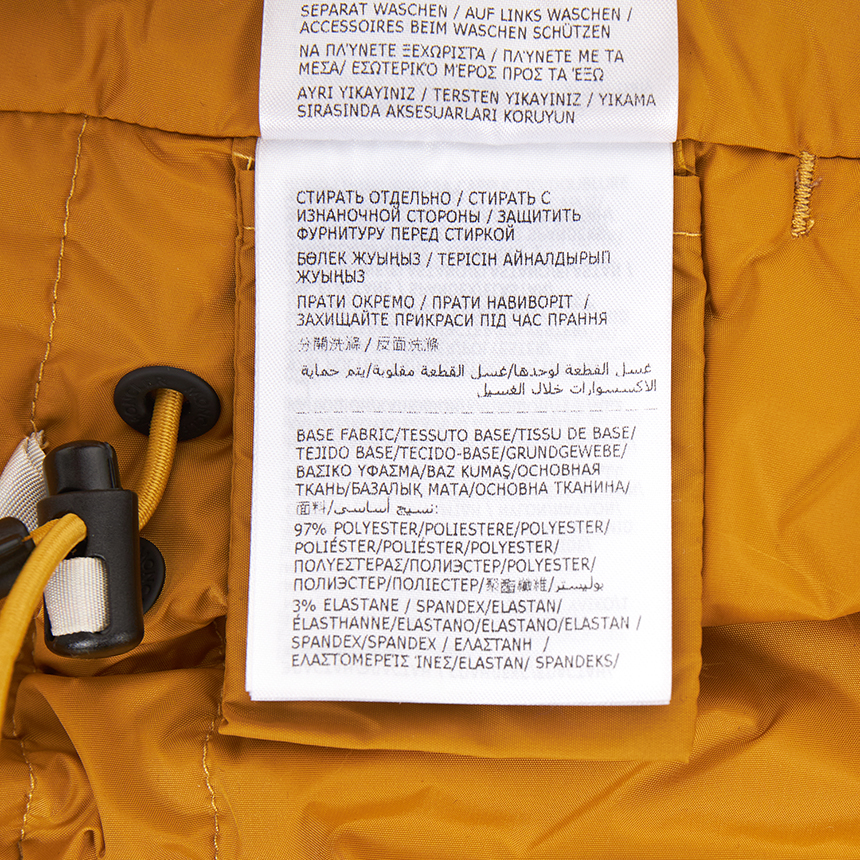 SEPARAT WASCHEN / AUF LINKS WASCHEN /
ACCESSOIRES BEIM WASCHEN SCHÜTZEN
ΝΑ ΠΛΎΝΕΤΕ ΞΕΧΩΡΙΣΤΑ / ΠΛΎΝΕΤΕ ΜΕ ΤΑ
ΜΕΣΑ/ ΕΣΩΤΕΡΙΚΌ ΜΈΡΟΣ ΠΡΟΣ ΤΑ ΈΞΩ
AYRI YIKAYINIZ / TERSTEN YIKAYINIZ / YIKAMA
SIRASINDA AKSESUARLARI KORUYUN
СТИРАТЬ ОТДЕЛЬНО / СТИРАТЬ С
ИЗНАНОЧНОЙ СТОРОНЫ / ЗАЩИТИТЬ
ФУРНИТУРУ ПЕРЕД СТИРКОЙ
БӨЛЕК ЖУЫҢЫЗ / ТЕРІСІН АЙНАЛДЫРЫП
ЖУЫҢЫЗ
ПРАТИ ОКРЕМО / ПРАТИ НАВИВОРІТ /
ЗАХИЩАЙТЕ ПРИКРАСИ ПІД ЧАС ПРАННЯ
分開洗滌 / 反面洗滌
غسل القطعة لوحدها/غسل القطعة مقلوبة/يتم حماية
الاكسسوارات خلال الغسيل
BASE FABRIC/TESSUTO BASE/TISSU DE BASE/
TEJIDO BASE/TECIDO-BASE/GRUNDGEWEBE/
ΒΑΣΙΚΟ ΥΦΑΣΜΑ/BAZ KUMAŞ/ОСНОВНАЯ
ТКАНЬ/БАЗАЛЫҚ МАТА/ОСНОВНА ТКАНИНА/
面料/نسيج أساسي:
97% POLYESTER/POLIESTERE/POLYESTER/
POLIÉSTER/POLIÉSTER/POLYESTER/
ΠΟΛΥΕΣΤΕΡΑΣ/ПОЛИЭСТЕР/POLYESTER/
ПОЛИЭСТЕР/ПОЛІЕСТЕР/聚酯纖維/بوليستر/
3% ELASTANE / SPANDEX/ELASTAN/
ÉLASTHANNE/ELASTANO/ELASTANO/ELASTAN /
SPANDEX/SPANDEX / ΕΛΑΣΤΑΝΗ /
ΕΛΑΣΤΟΜΕΡΕΊΣ ΊΝΕΣ/ELASTAN/ SPANDEKS/